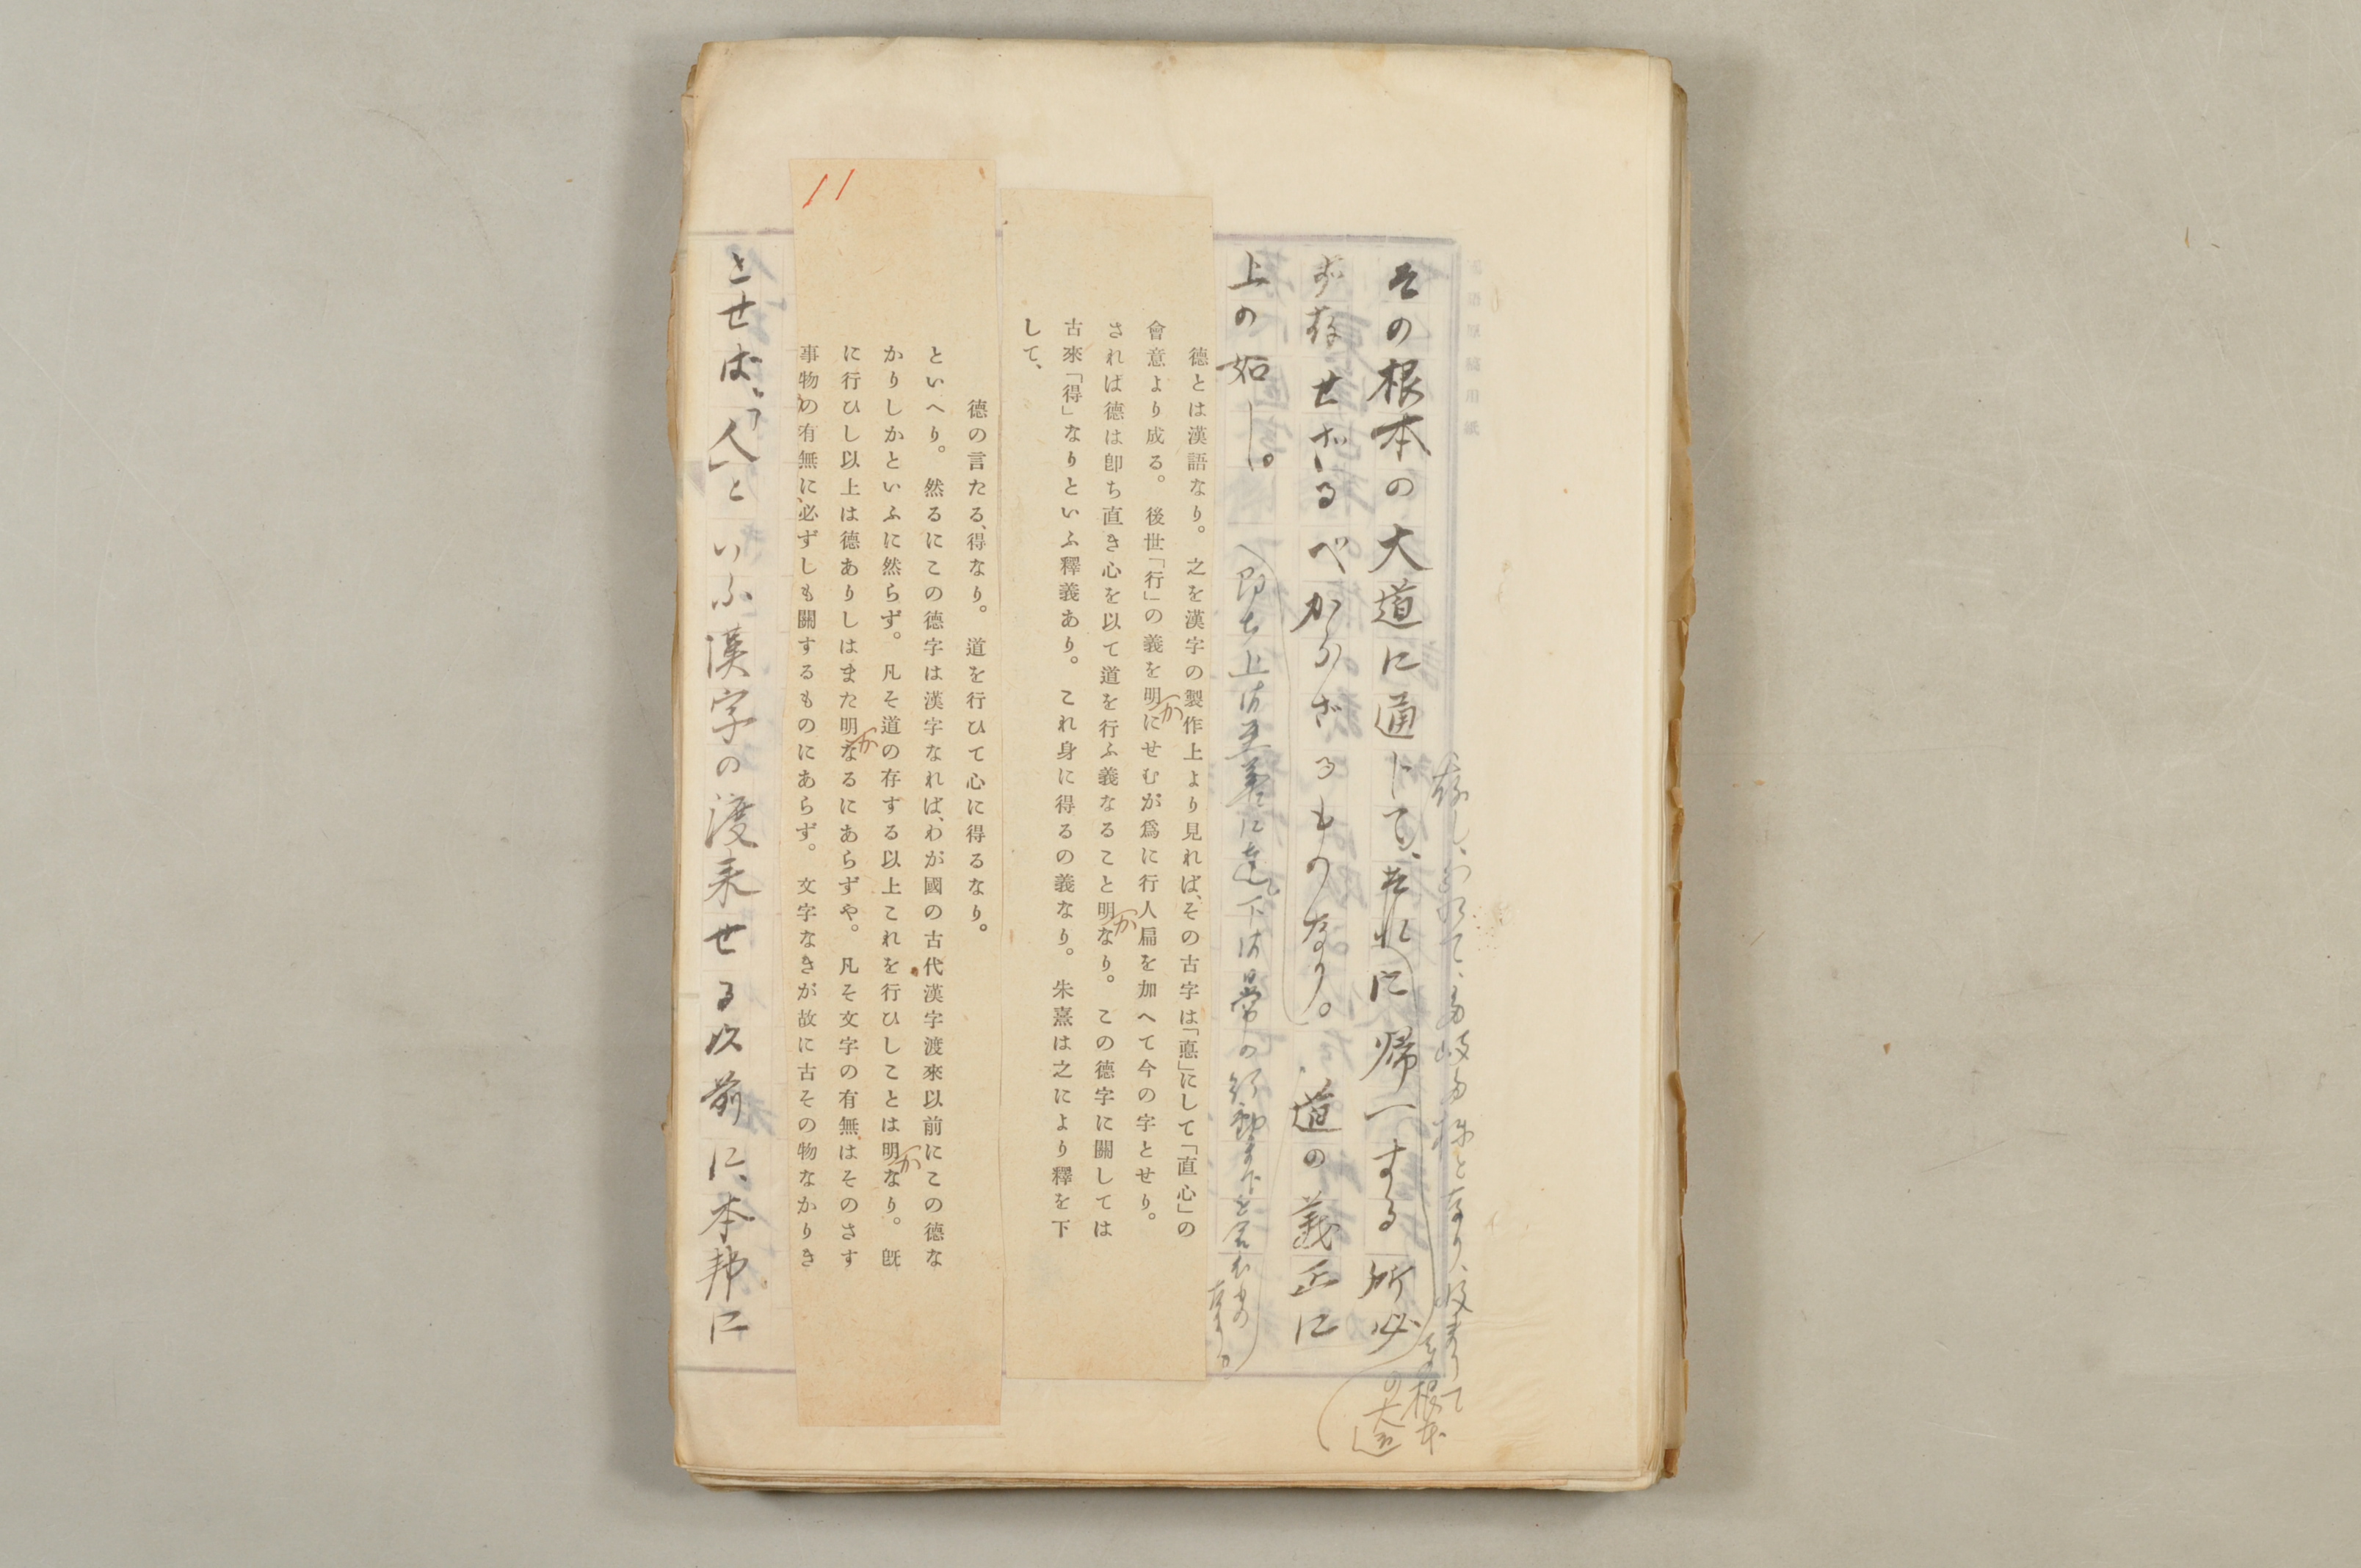 その根本の大道に通じて、それに帰一する所必
ず存せざるべからざるものなり。道の義正に
上の如し。
即ち上は至善に達し、下は日常の行動までを含むものなり
存し、分れて、多岐多様となり、
その根本
の大道
德とは漢語なり。之を漢字の製作上より見れば、その古字は「悳」にして「直心」の
會意より成る。後世「行」の義を明かにせむが爲に行人扁を加へて今の字とせり。
されば德は卽ち直き心を以て道を行ふ義なること明かなり。この德字に關しては
古來「得」なりといふ釋義あり。これ身に得るの義なり。朱熹は之により釋を下
して、
11
德の言たる、得なり。道を行ひて心に得るなり。
といへり。然るにこの德字は漢字なれば、わが國の古代漢字渡來以前にこの德な
かりしかといふに然らず。凡そ道の存する以上これを行ひしことは明かなり。旣
に行ひし以上は德ありしはまた明かなるにあらずや。凡そ文字の有無はそのさす
事物の有無に必ずしも關するものにあらず。文字なきが故に古その物なかりき
とせば、「人」といふ漢字の渡来せる以前に、本邦に